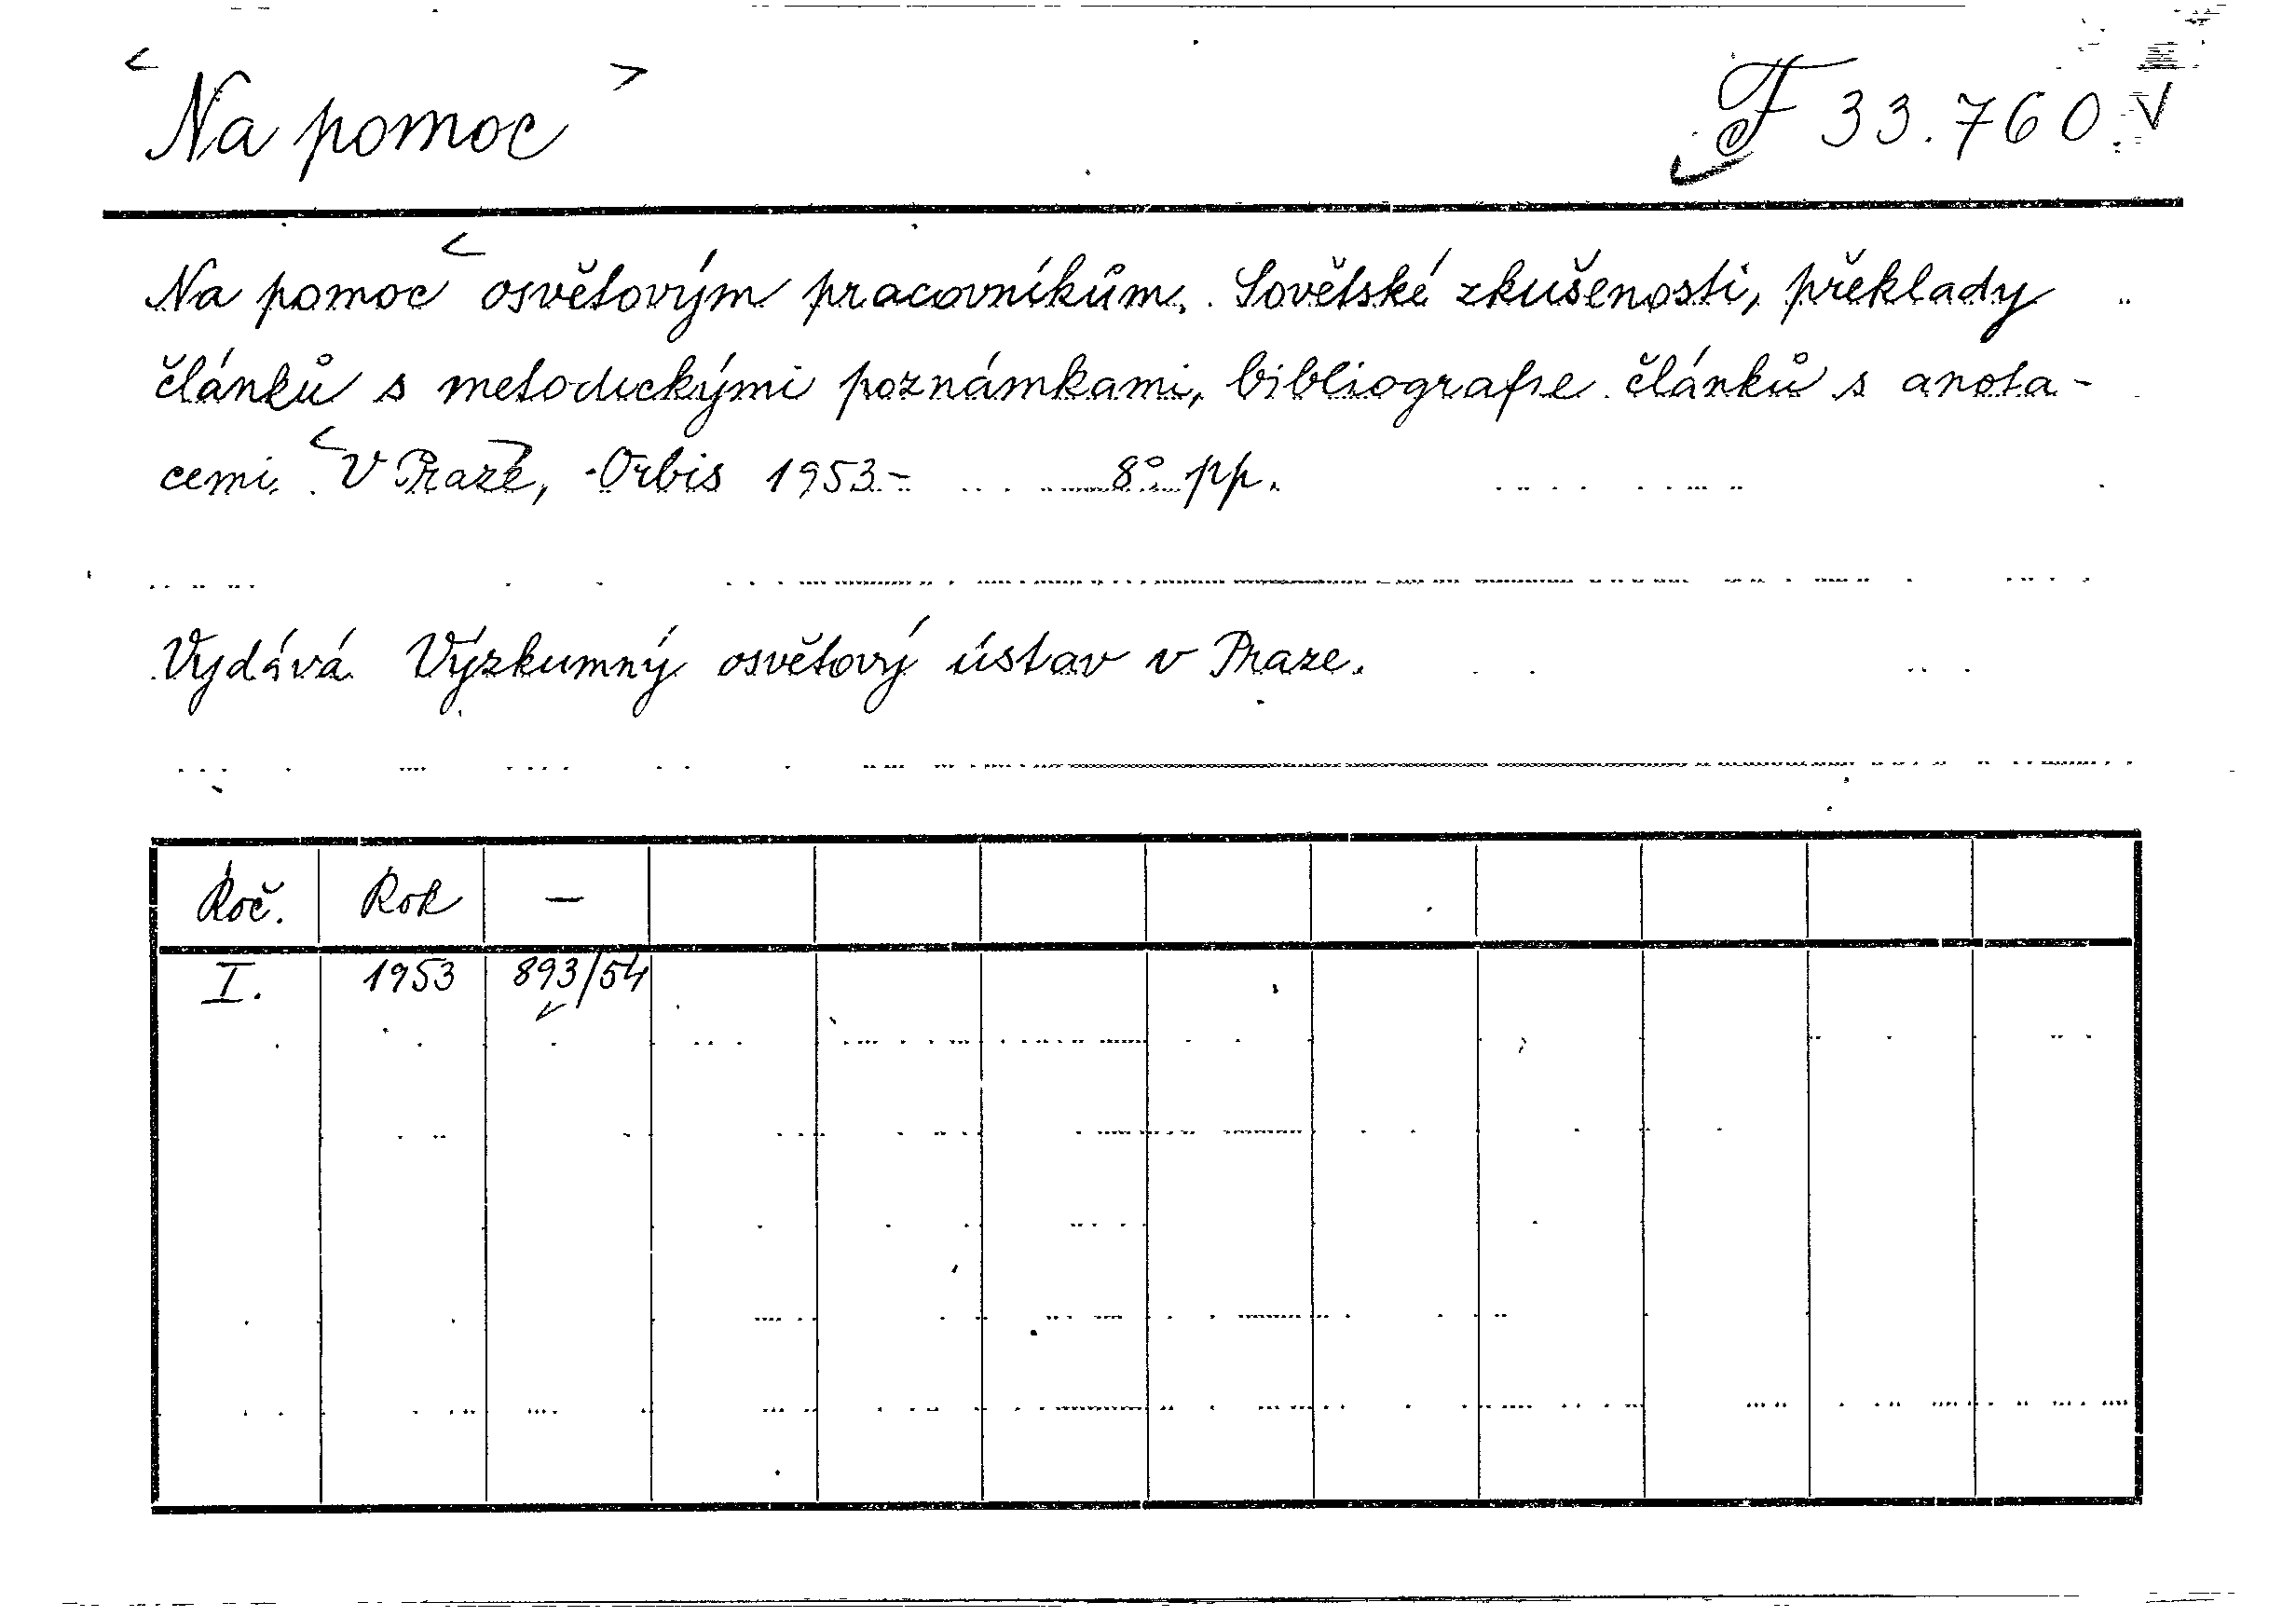 <Na pomoc> F 33.760.
Na pomoc < osvětovým pracovníkům. Sovětské zkušenosti, překlady
článků s metodickými poznámkami, bibliografie článků s anota-
cemi. < V Praze >, Orbis 1953- 8° pp.
Vydává Výzkumný osvětový ústav v Praze.
Roč. Rok —
I. 1953 893/54